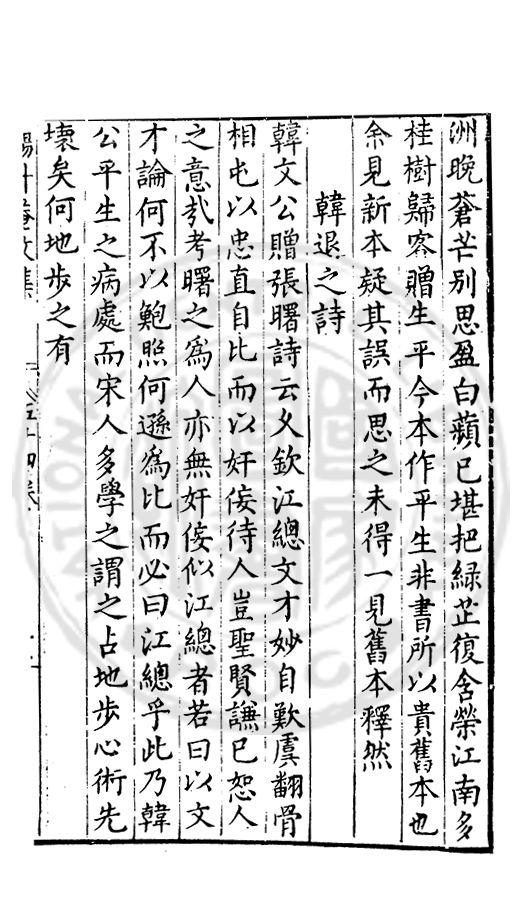 洲晚蒼茫別思盈白蘋已堪把緑芷復含榮江南多
桂樹歸客贈生平今本作平生非書所以貴舊本也
余見新本疑其誤而思之未得一見舊本釋然
韓退之詩
韓文公贈張曙詩云久欽江總文才妙自歎虞翻骨
相屯以忠直自比而以奸佞待人豈聖賢謙已恕人
之意㢤考曙之爲人亦無奸佞似江總者若曰以文
才論何不以鮑照何遜爲比而必曰江總乎此乃韓
公平生之病處而宋人多學之謂之占地步心術先
壊矣何地步之有
楊升菴文集
五十四卷